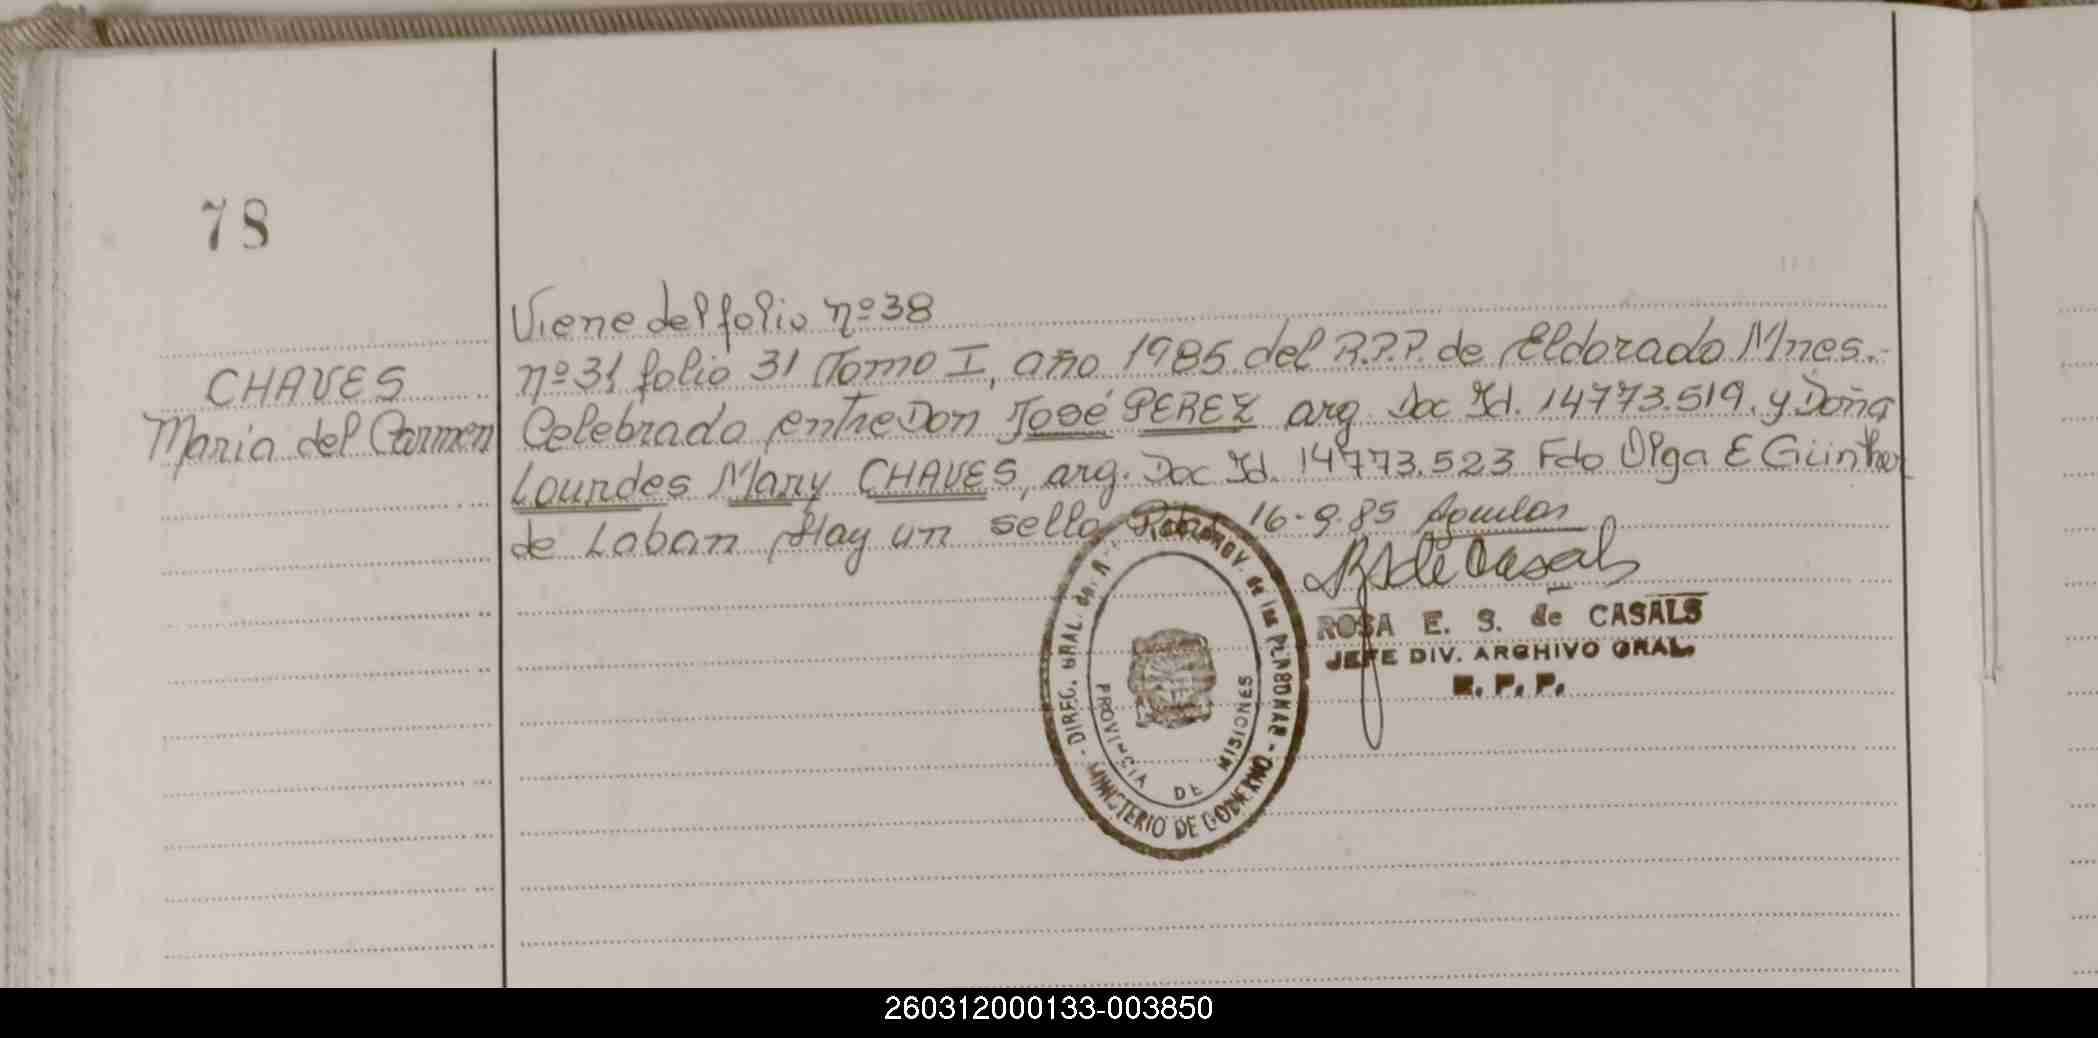 78
Viene del folio nº 38
CHAVES
María del Carmen
nº 31 folio 31 Tomo I, año 1985 del R.P.P. de Eldorado Mnes.-
Celebrado entre Don José PEREZ arg. Doc Id. 14773.519. y Doña
Lourdes Mary CHAVES, arg. Doc Id. 14773.523 Fdo Olga E Günther
de Loban Hay un sello 16-9-85
ROSA E. S. de CASALS
JEFE DIV. ARCHIVO GRAL.
R. P. P.
DIREC. GRAL. del PROV. de las PERSONAS - MINISTERIO DE GOBIERNO
PROVINCIA DE MISIONES
260312000133-003850